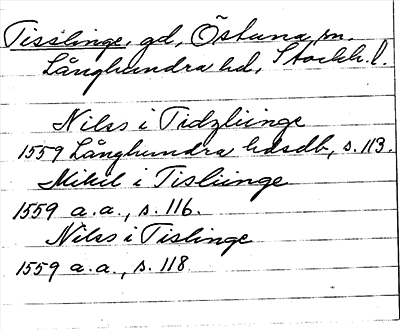 Tisslinge, gd, Östuna sn.
Långhundra hd, Stockh. l.
Nilss i Tidzliinge
1559 Långhundra hdsdb, s. 113.
Mikil i Tisliinge
1559 a.a., s. 116.
Nilss i Tislinge
1559 a.a., s. 118